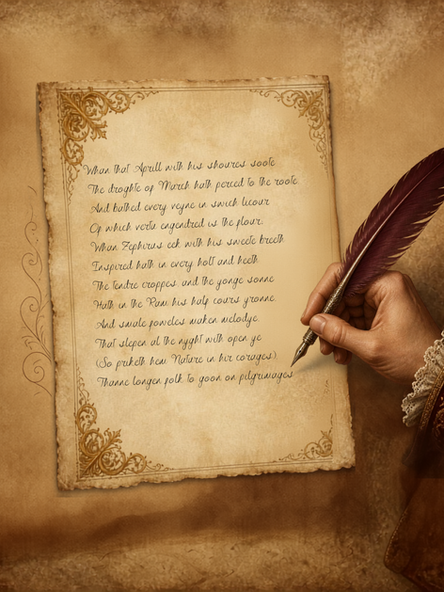 Whan that Aprill with his shoures soote
The droghte of March hath perced to the roote
And bathed every veyne in swich licour
Of which vertu engendred is the flour;
Whan Zephirus eek with his sweete breeth
Inspired hath in every holt and heeth
The tendre croppes, and the yonge sonne
Hath in the Ram his half cours yronne
And smale foweles maken melodye
That slepen al the nyght with open ye
(So priketh hem Nature in hir corages)
Thanne longen folk to goon on pilgrimages